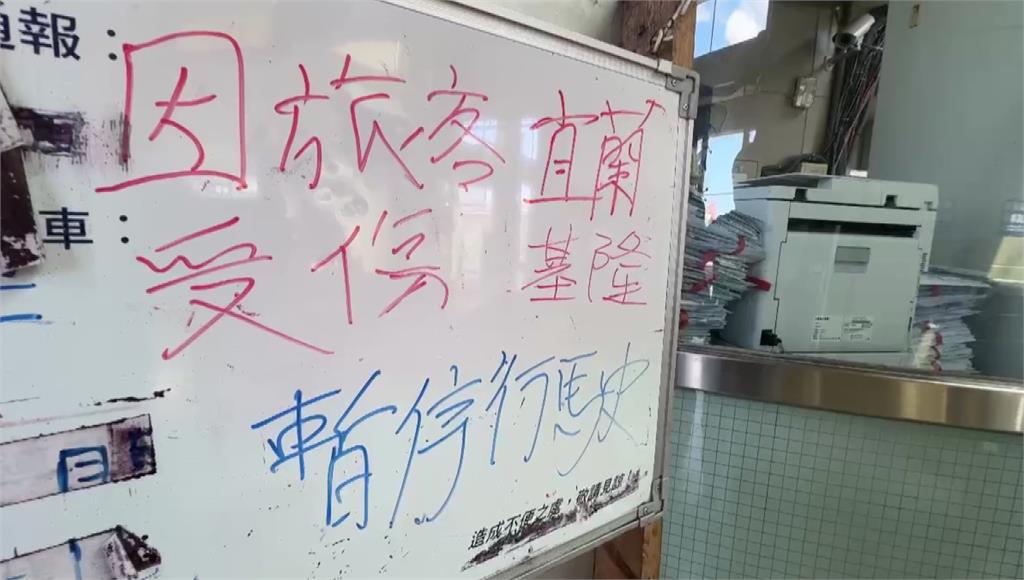 報：
因旅客 宜蘭
車：
受傷 基隆
暫停行駛
月
造成不便之處，敬請見諒！